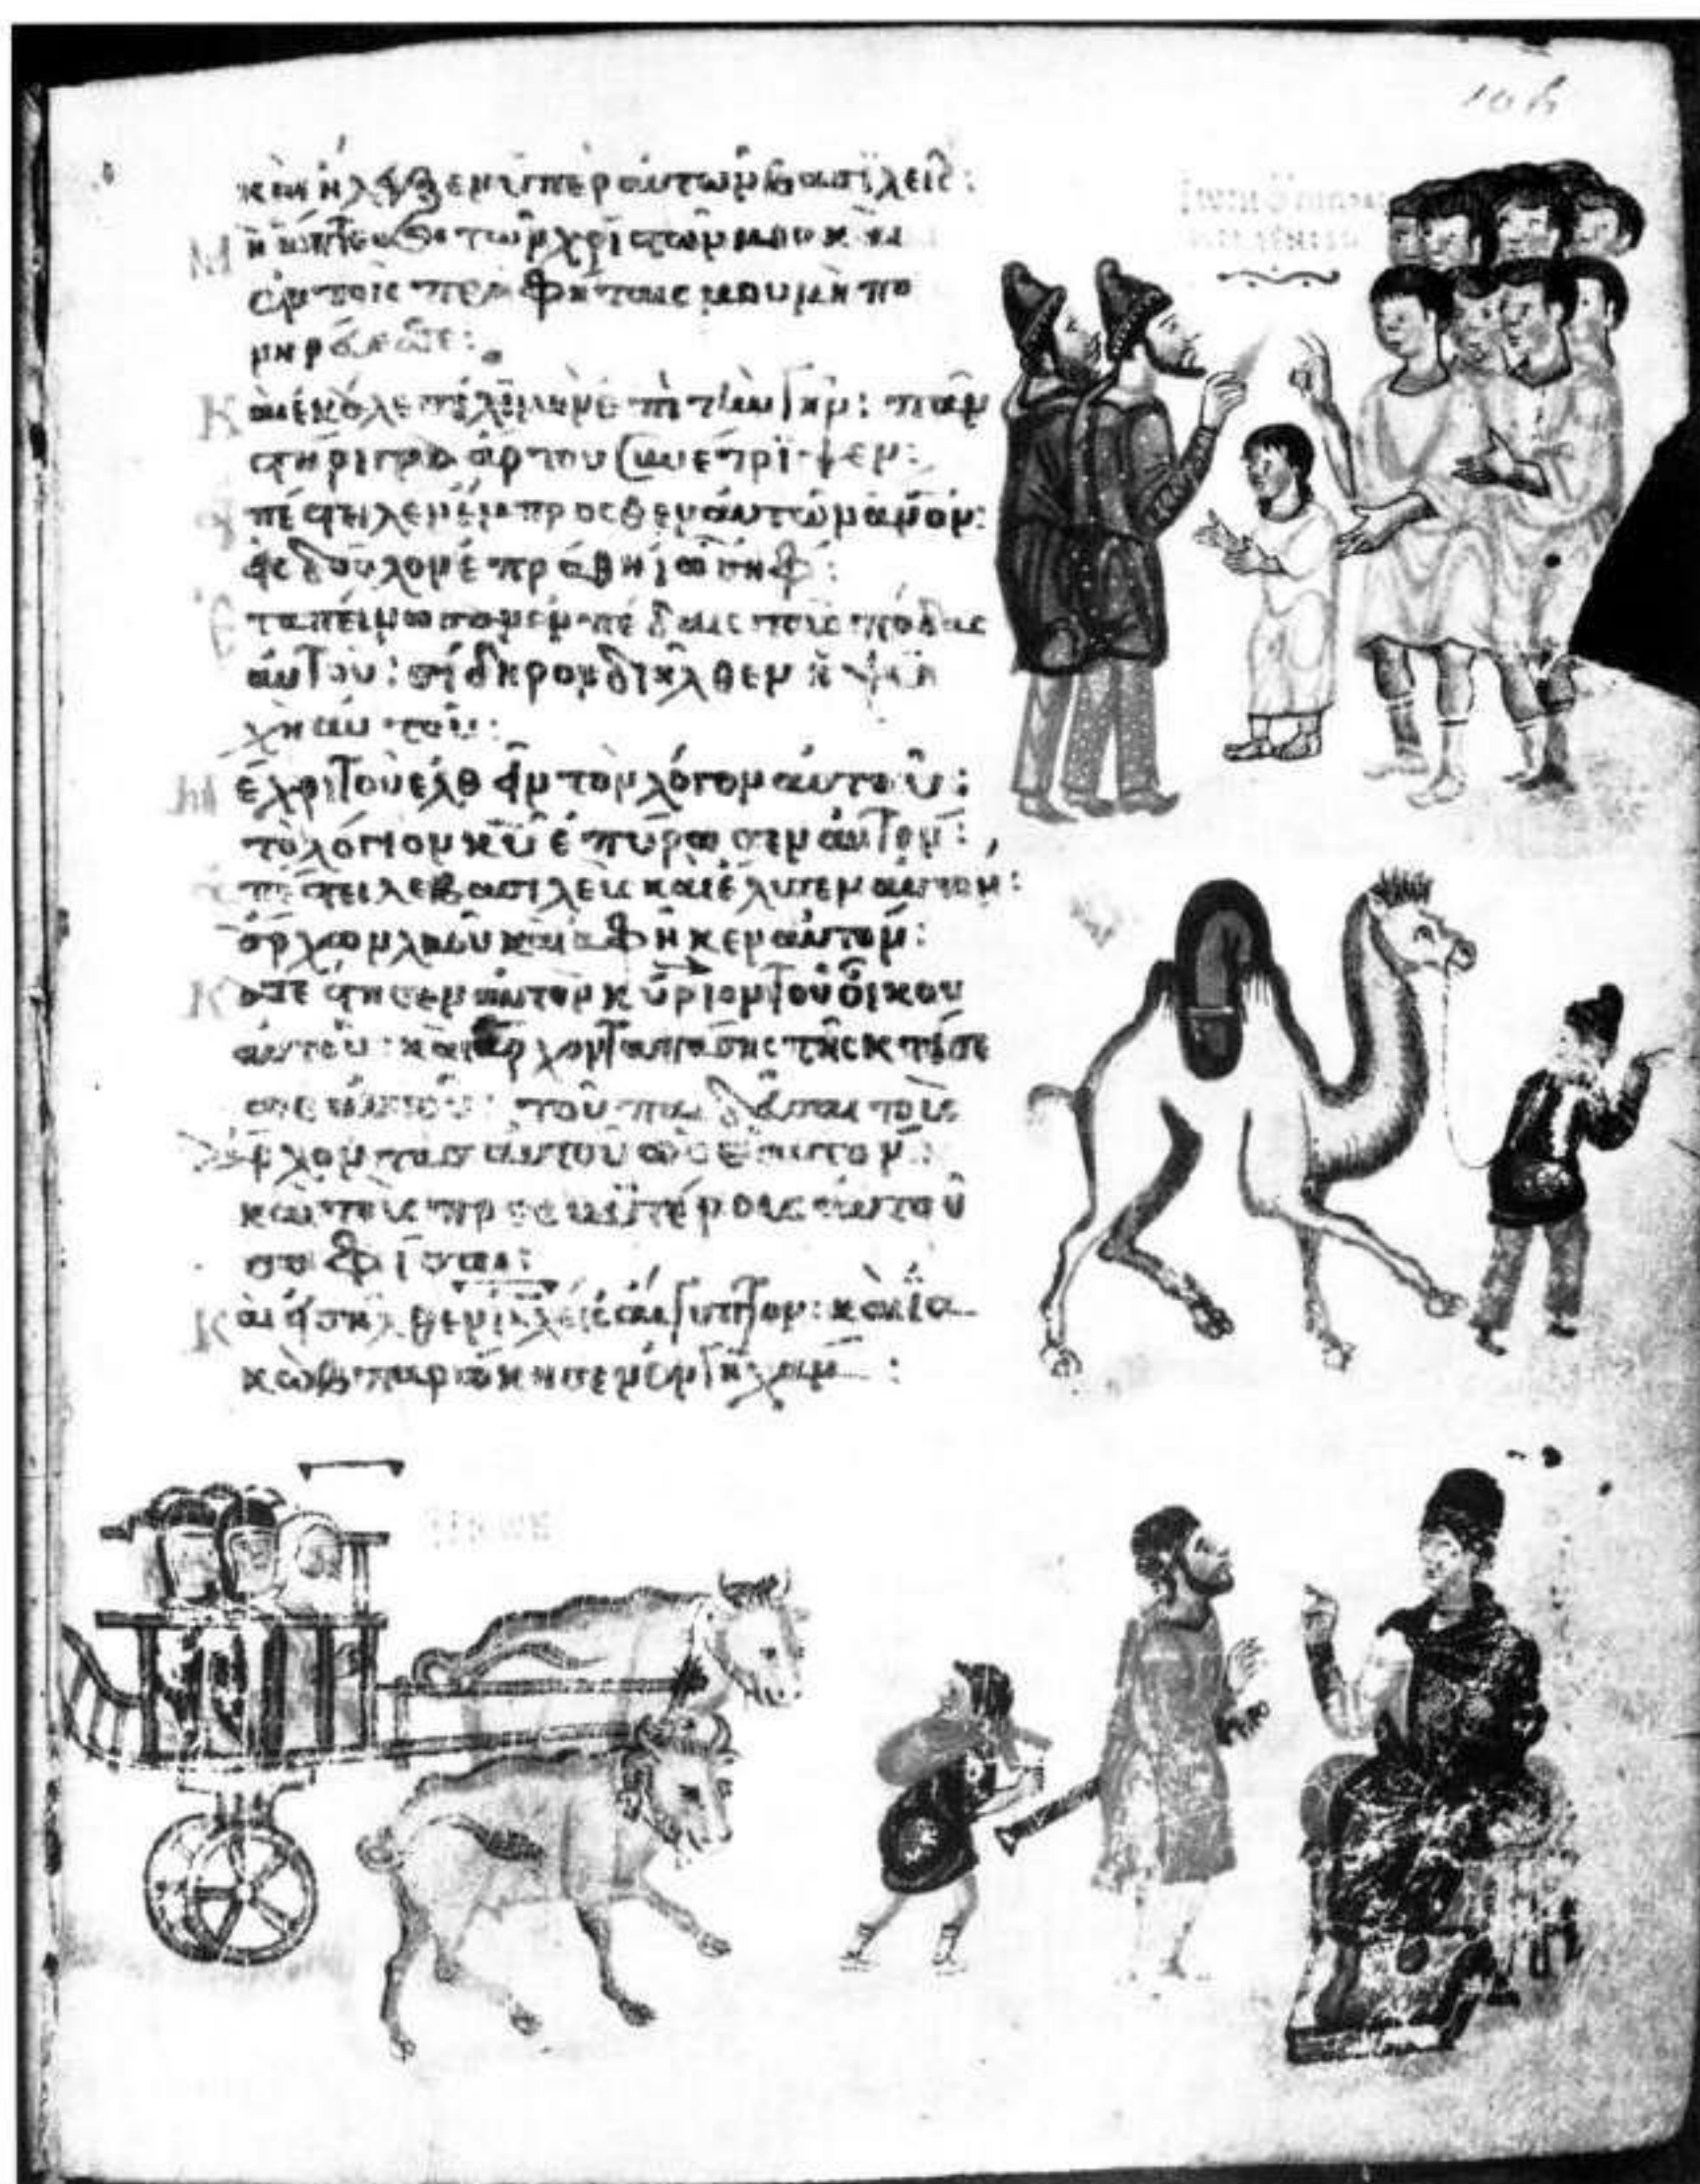 106
καὶ ἤλεγξεν ὑπὲρ αὐτῶν βασιλεῖς:
Μὴ ἅπτεσθε τῶν χριστῶν μου καὶ
ἐν τοῖς προφήταις μου μὴ πο
νηρεύεσθε:
Καὶ ἐκάλεσε λιμὸν ἐπὶ τὴν γῆν: πᾶν
στήριγμα ἄρτου συνέτριψεν:
ἀπέστειλεν ἔμπροσθεν αὐτῶν ἄνον:
εἰς δοῦλον ἐπράθη ἰωσήφ:
Ἐταπείνωσαν ἐν πέδαις τοὺς πόδας
αὐτοῦ: σίδηρον διῆλθεν ἡ ψυ
χὴ αὐτοῦ:
Μέχρι τοῦ ἐλθεῖν τὸν λόγον αὐτοῦ:
τὸ λόγιον κυ ἐπύρωσεν αὐτόν:
ἀπέστειλε βασιλεὺς καὶ ἔλυσεν αὐτόν:
ἄρχων λαοῦ καὶ ἀφῆκεν αὐτόν:
Κατέστησεν αὐτὸν κύριον τοῦ οἴκου
αὐτοῦ: καὶ ἄρχοντα πάσης τῆς κτήσε
ως αὐτοῦ: τοῦ παιδεῦσαι τοὺς
ἄρχοντας αὐτοῦ ὡς ἑαυτόν:
καὶ τοὺς πρεσβυτέρους αὐτοῦ
σοφίσαι:
Καὶ εἰσῆλθεν ιηλ εἰς αἴγυπτον: καὶ ϊα
κὼβ παρώκησεν ἐν γῆ χαμ: